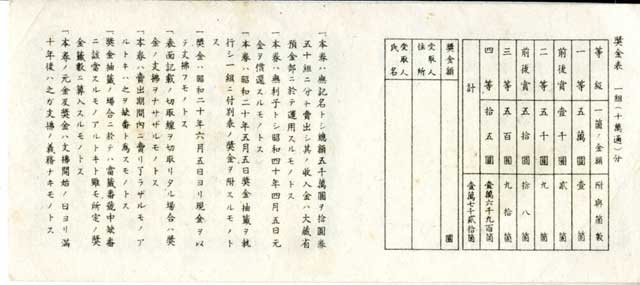 奬金表 一組(十萬通)分
等級 一箇ノ金額 附與箇數
一等 五萬圓 壹箇
前後賞 壹千圓 貳箇
二等 五千圓 九箇
前後賞 五拾圓 拾八箇
三等 五百圓 九拾箇
四等 拾五圓 壹萬六千九百箇
計 壹萬七千貳拾箇
奬金額 圓
受取人住所
受取人氏名
「本券ハ無記名トシ總額五千萬圓ヲ拾圓券
五十組ニ分チ賣出シ其ノ收入金ハ大藏省
預金部ニ於テ運用スルモノトス
「本券ハ無利子トシ昭和四十年四月五日元
金ヲ償還スルモノトス
「本券ハ昭和二十年五月五日奬金抽籤ヲ執
行シ一組ニ付別表ノ奬金ヲ附スルモノト
ス
「奬金ハ昭和二十年六月五日ヨリ現金ヲ以
テ支拂フモノトス
「表面記載ノ切取線ヲ切取リタル場合ハ奬
金ノ支拂ヲナサザルモノトス
「本券ハ賣出期間内ニ賣リ了ラザルモノア
ルトキハ之ヲ缺番ト爲スモノトス
「奬金抽籤ノ場合ニ於テハ當籤番號中缺番
ニ該當スルモノアルトキト雖モ所定ノ奬
金籤數ニ算入スルモノトス
「本券ノ元金及奬金ハ支拂開始ノ日ヨリ滿
十年後ハ之ガ支拂ノ義務ナキモノトス